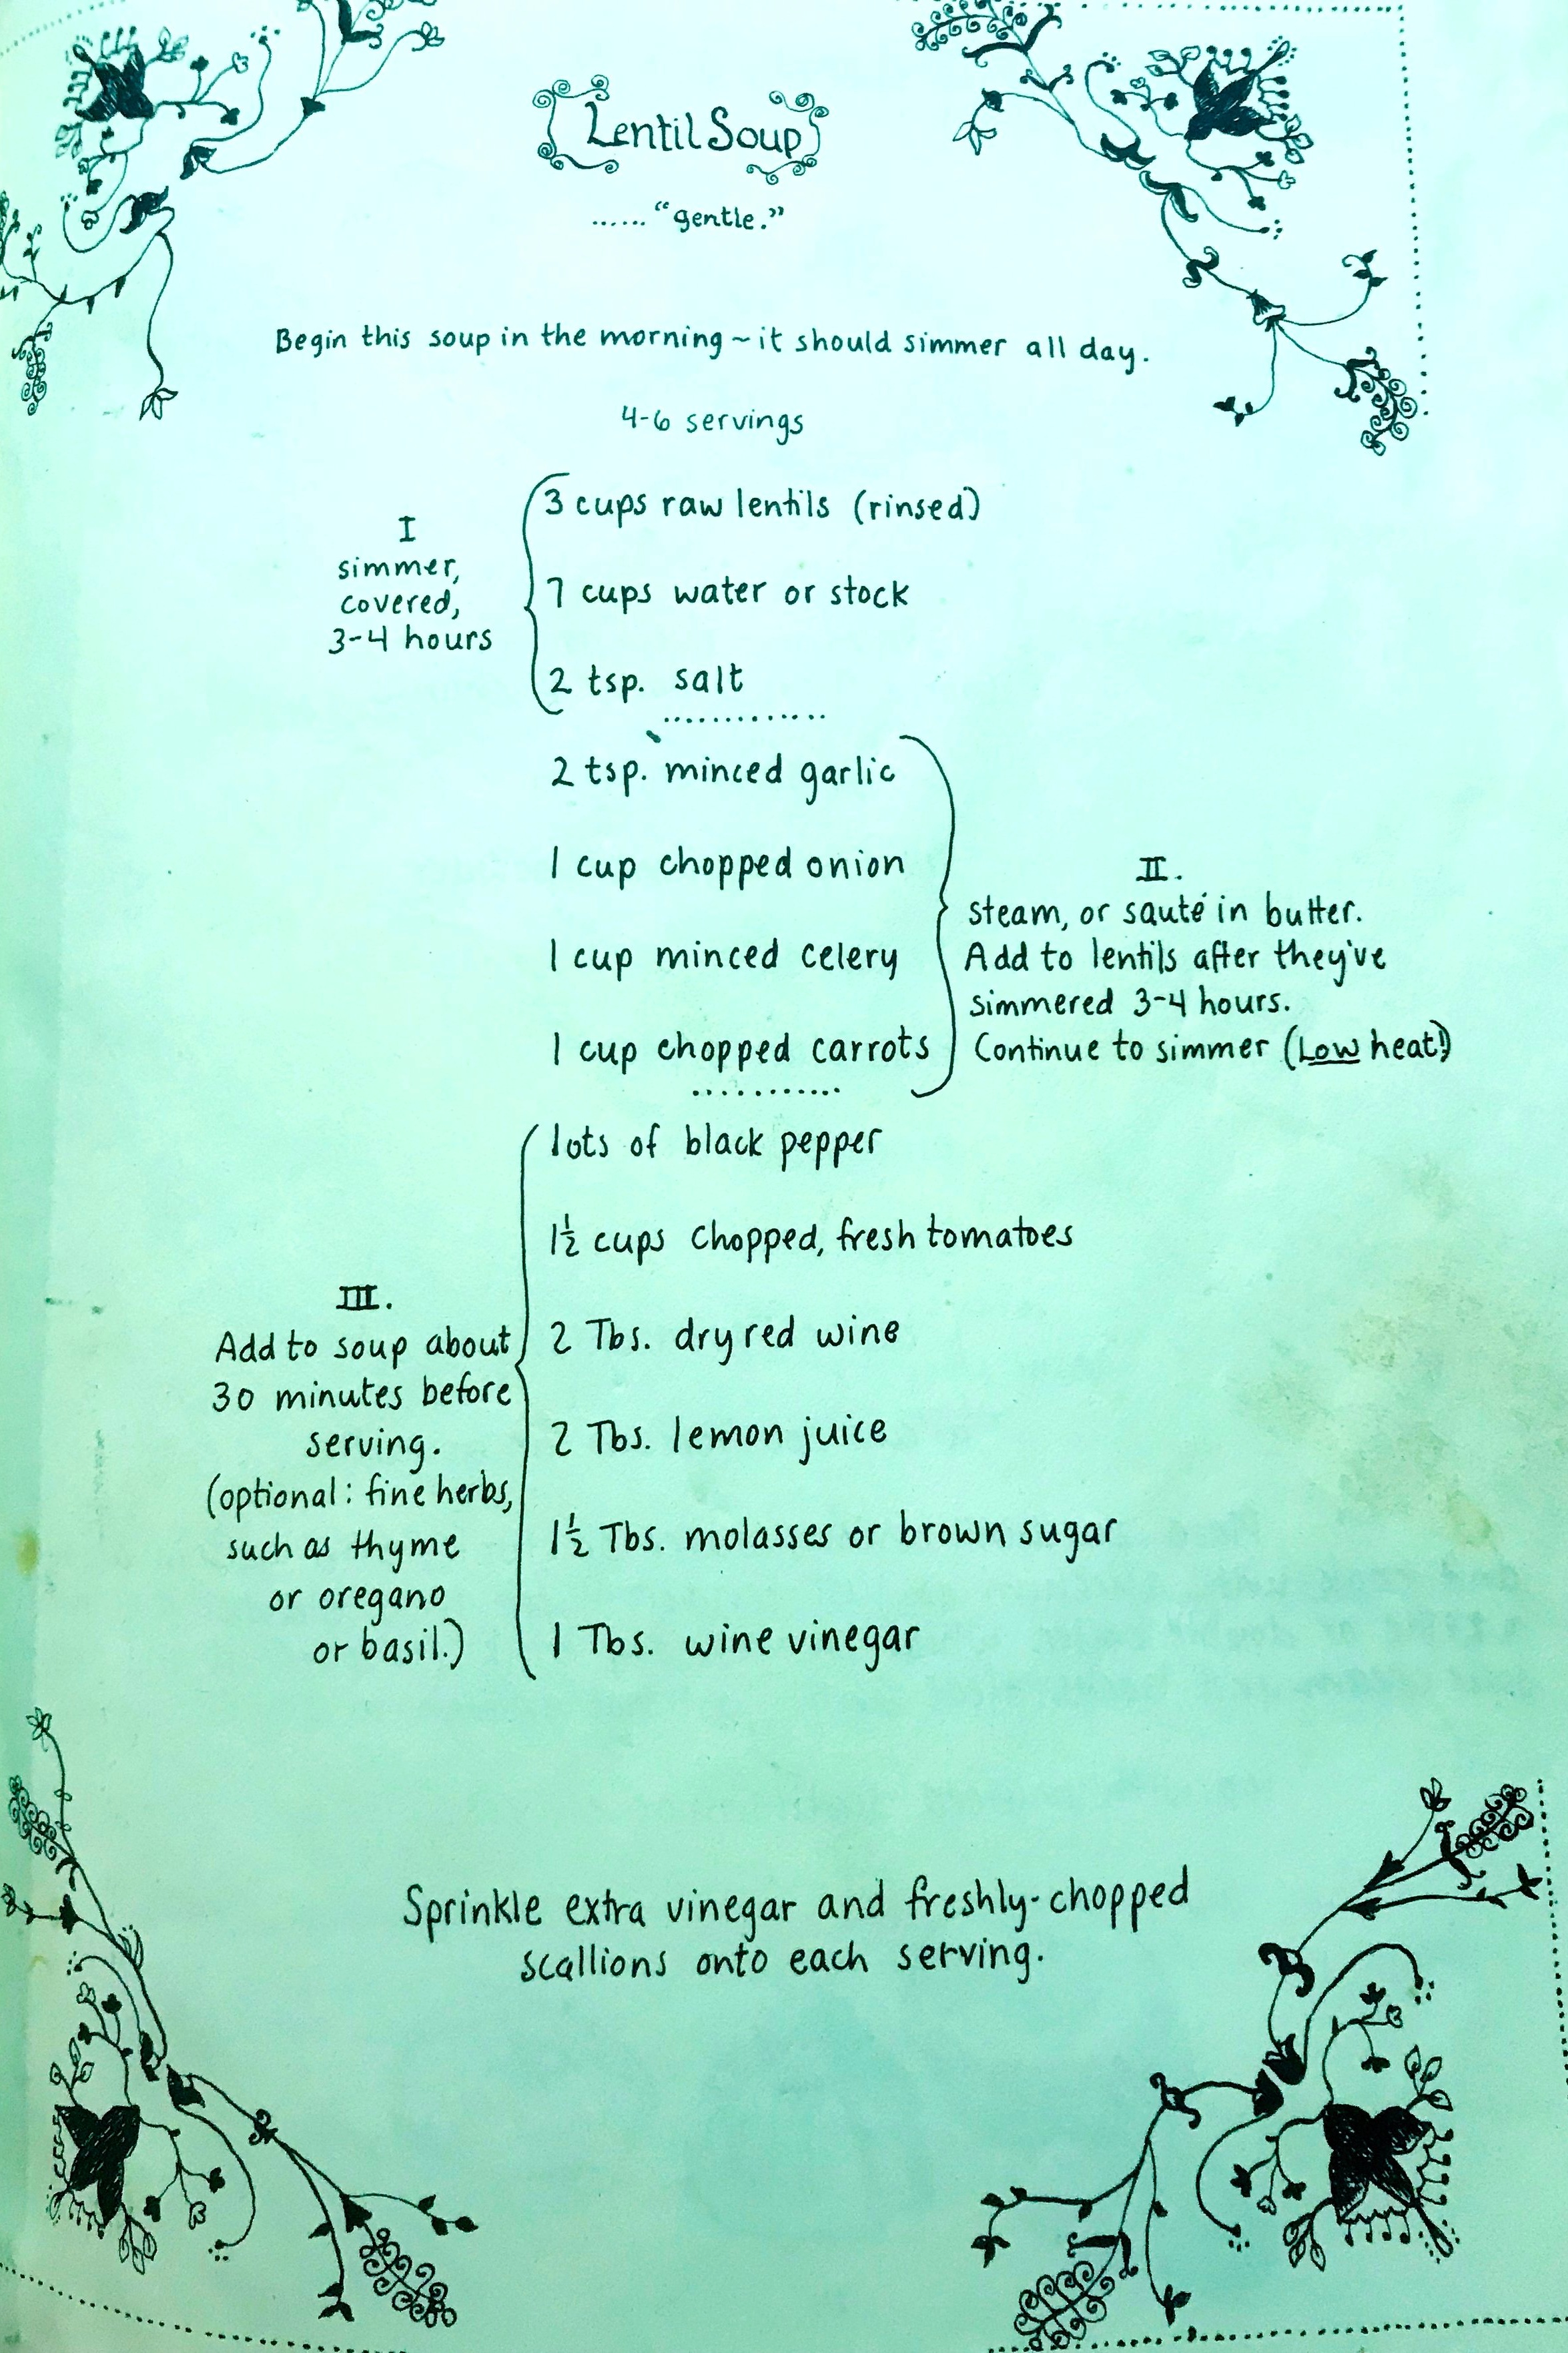 Lentil Soup
...... "gentle."
Begin this soup in the morning ~ it should simmer all day.
4-6 servings
I
simmer,
covered,
3-4 hours
3 cups raw lentils (rinsed)
7 cups water or stock
2 tsp. salt
2 tsp. minced garlic
1 cup chopped onion
1 cup minced celery
1 cup chopped carrots
II.
steam, or sauté in butter.
Add to lentils after they've
simmered 3-4 hours.
Continue to simmer (Low heat!)
III.
Add to soup about
30 minutes before
serving.
(optional: fine herbs,
such as thyme
or oregano
or basil.)
lots of black pepper
1½ cups chopped, fresh tomatoes
2 Tbs. dry red wine
2 Tbs. lemon juice
1½ Tbs. molasses or brown sugar
1 Tbs. wine vinegar
Sprinkle extra vinegar and freshly-chopped
scallions onto each serving.